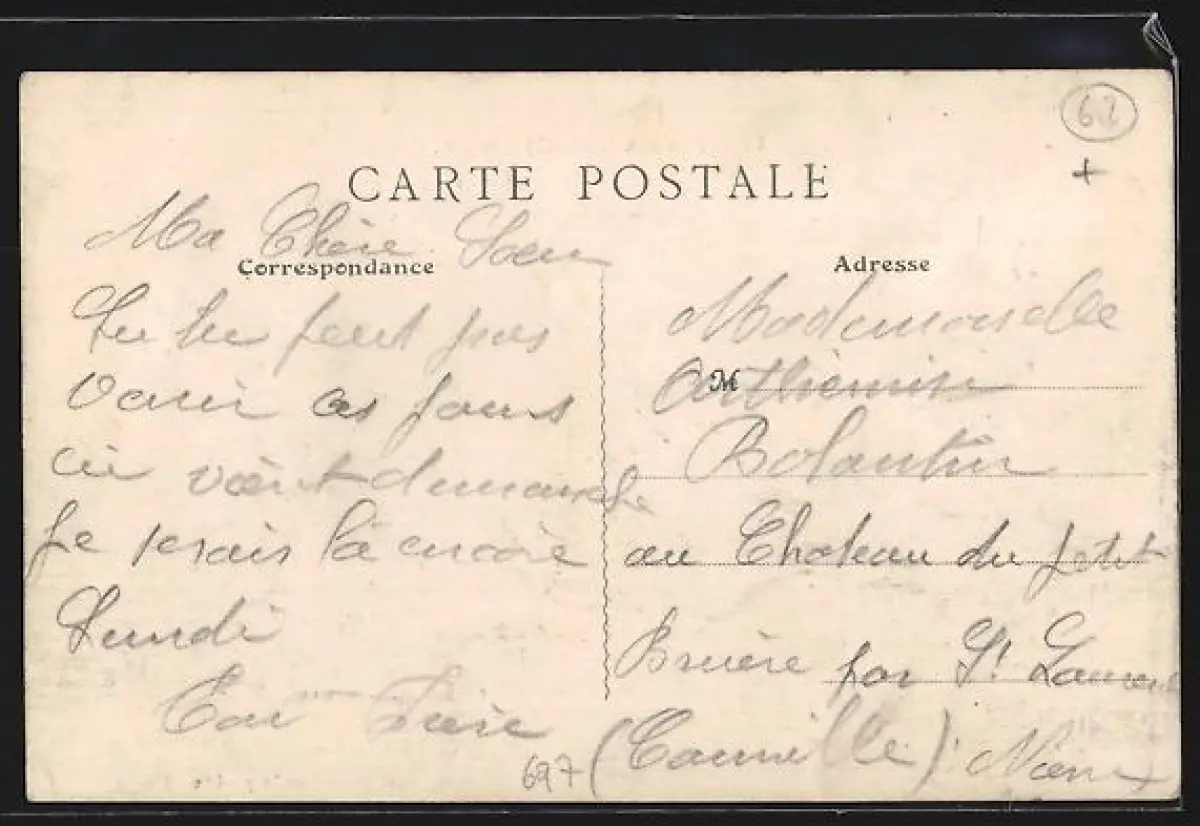 62
+
CARTE POSTALE
Ma Chère Soeur
Correspondance
Tu ne peut pas
venir ces jours
ci vient dimanche
je serais là encore
Lundi
Ton Frère
697
Adresse
Mademoiselle
M
Bolantin
au Chateau du petit
Bruère par St Laurent
(
)